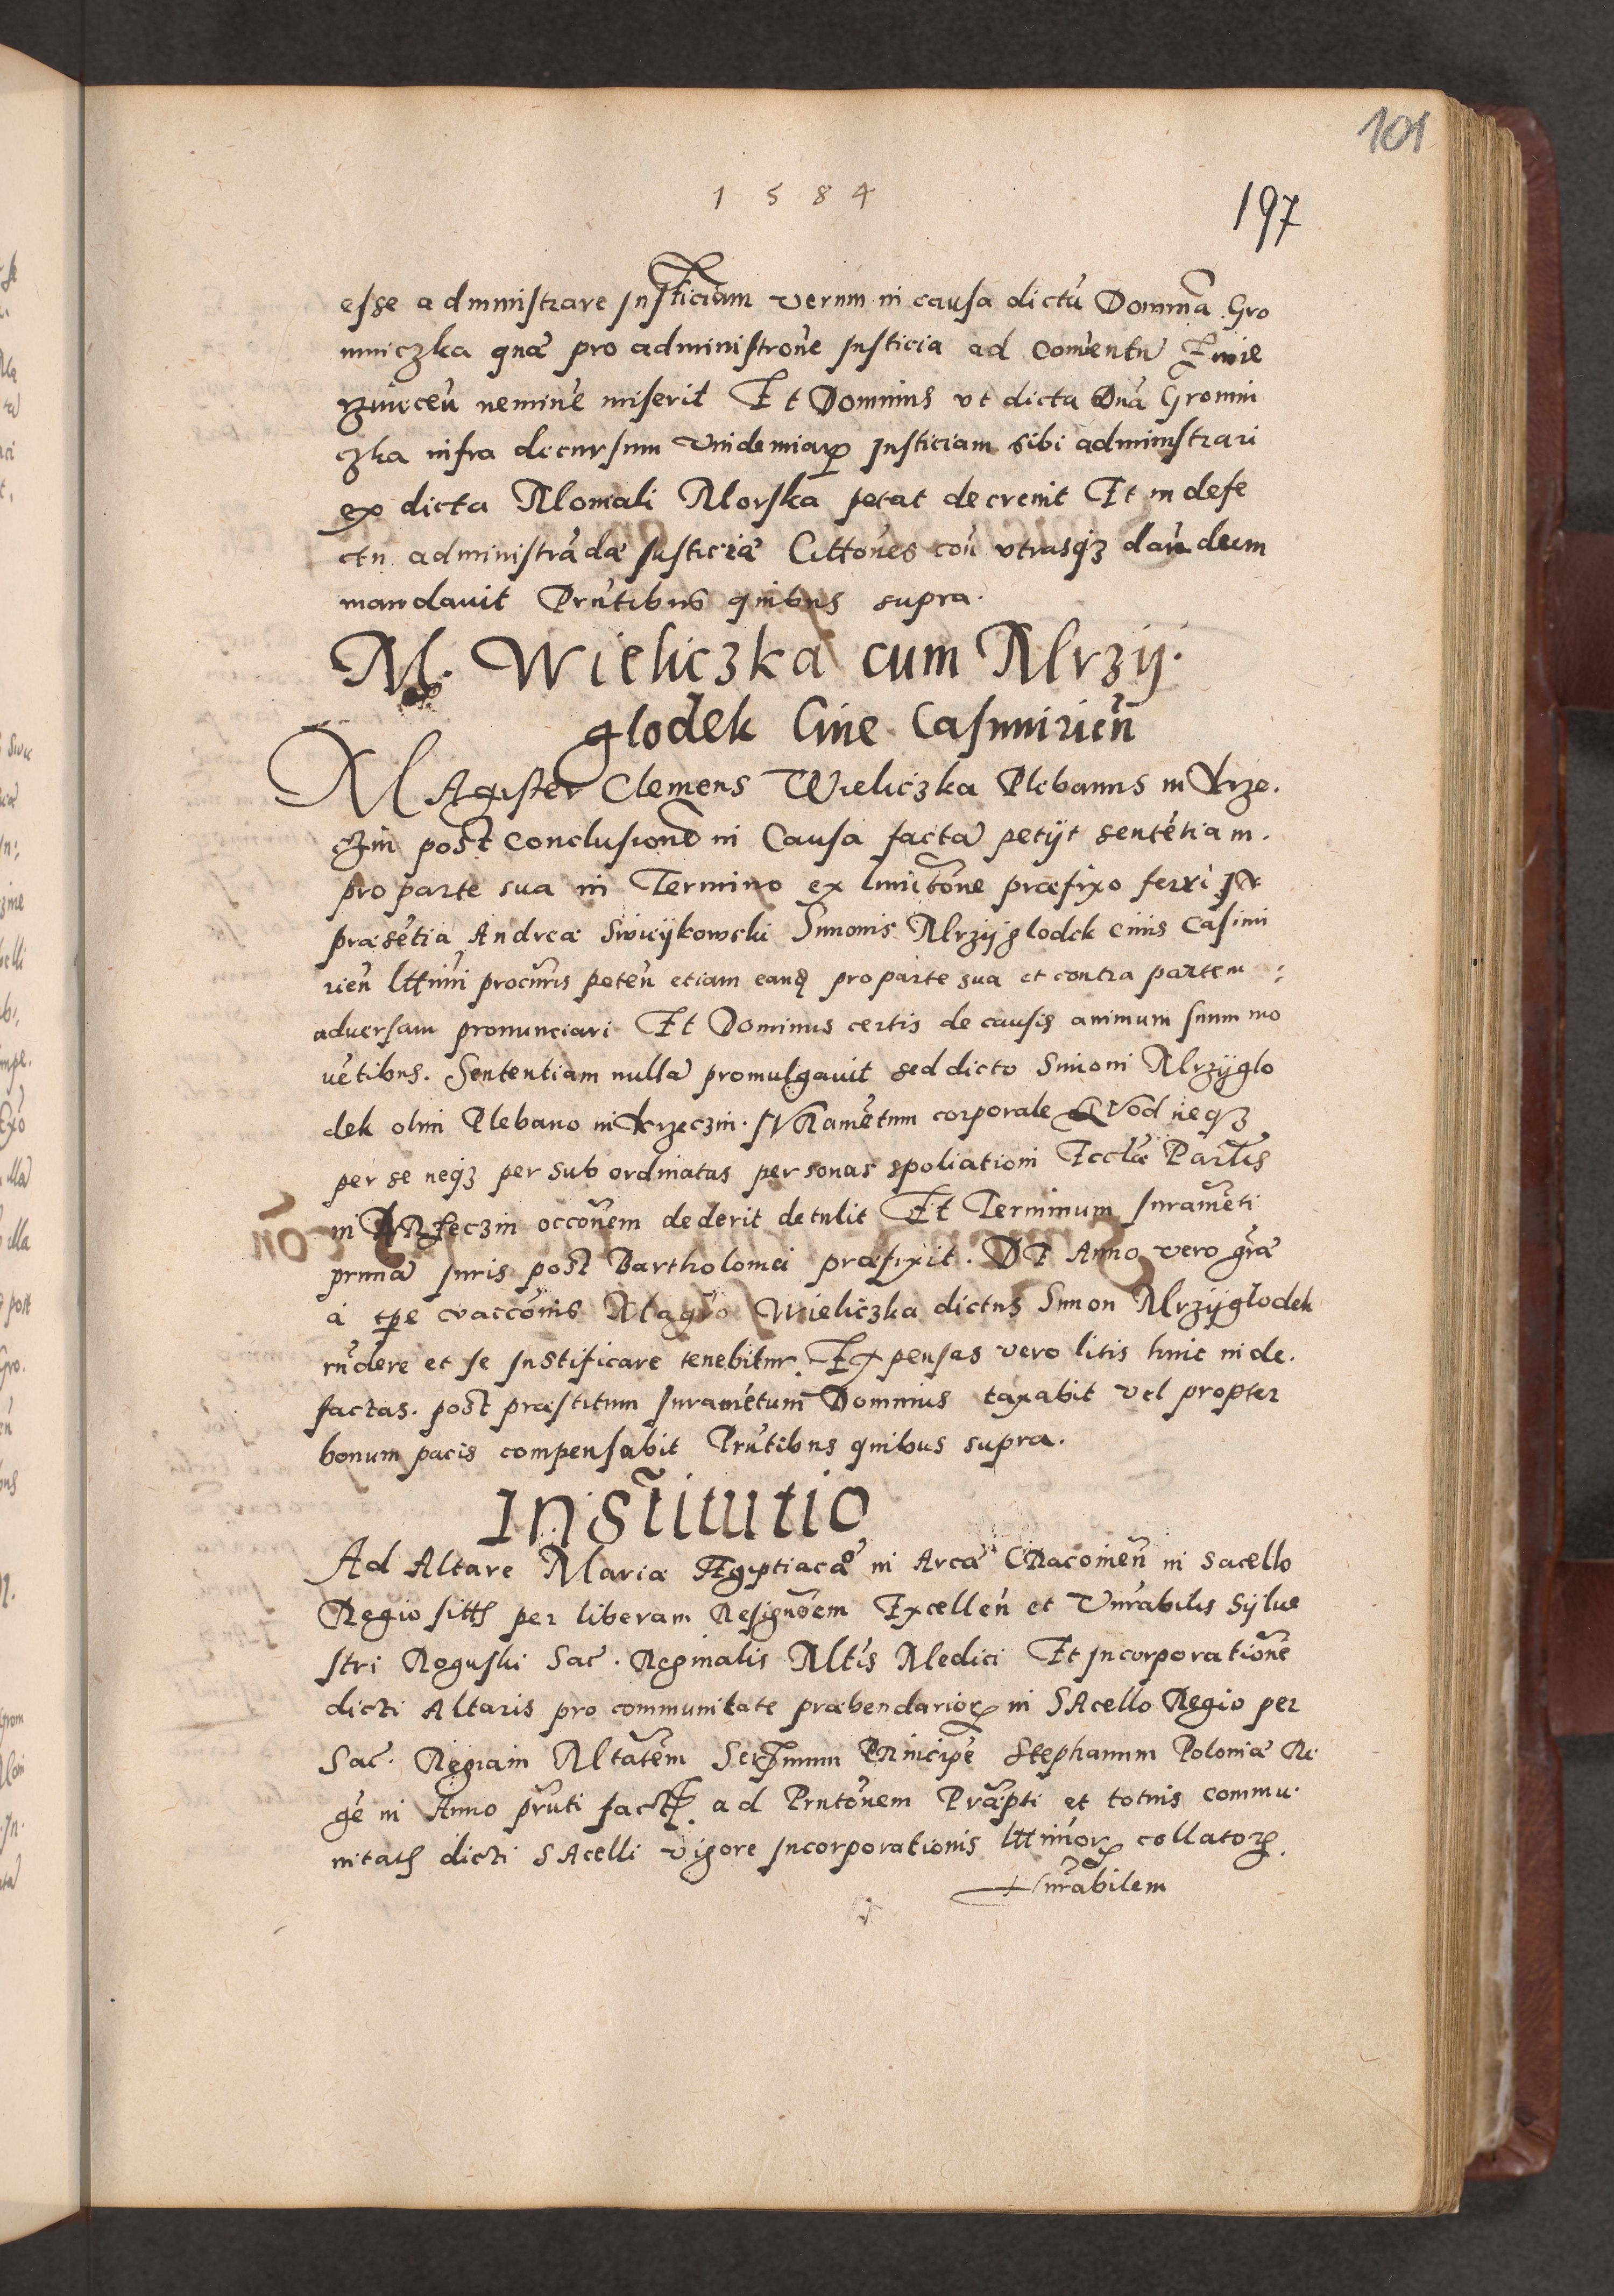 101
1 5 8 4
197
esse administrare Justiciam verum in causa dictū Dominā Gro
mniczka quæ pro administrone Justiciæ ad Conventū Zwie
rziniceñ neminē miserit Et Dominus vt dicta Dnā Gromni
czka infra decursum Vindemiarꝝ Justiciam sibi administrari
ex dicta Moniali Morska petat decrevit Et in defe
ctu administrādæ Justiciæ Cittōnes coñ vtrasqꝫ dandeem
mandavit Prñtibus quibus supra.
M. Wieliczka cum Mrzij.
glodek Cive Casimirieñ
MAgister Clemens Wieliczka Plebanus in Krze.
czin post Conclusionē in Causa factā petijt sentētiam.
pro parte sua in Termino ex limitōne præfixo ferri In
præsētia Andreæ Swieijkowski Simonis Mrzijglodek civis Casimi
rieñ lttimi procuris peteñ etiam eandē pro parte sua et contra partem
adversam pronunciari Et Dominus certis de causis animum suum mo
vētibus. Sententiam nullā promulgavit sed dicto Simoni Mrzijglo
dek olim Plebano in Krzeczin. IVRamētum corporale QVod neqꝫ
per se neqꝫ per subordinatas personas spoliationi Ecclæ Partis
in KRzeczin occōnem dederit detulit Et Terminum Juramēti
primā Juris post Bartholomei præfixit. DE Anno vero græ
a tꝑe vaccōnis Magrō Wieliczka dictus Simon Mrzijglodek
rñdere et se Justificare tenebitur. Expensas vero litis hinc inde.
factas. post præstitum Juramētum Dominus taxabit vel propter
bonum pacis compensabit Prñtibus quibus supra.
Institutio
Ad Altare Mariæ Ægyptiacæ in Arcæ CRacovieñ in sacello
Regio sitt per liberam Resignōem Excelleñ et Vnrabilis Sijlve
stri Roguski Sac. Reginalis Mttis Medici Et Incorporationē
dicti Altaris pro communitate præbendariorꝝ in SAcello Regio per
Sac. Regiam Mttatem Serꝫmum PRincipē Stephanum Poloniæ Re
gē in Anno prñti fact. ad Prntōnem Præfti et totius commu.
nitatis dicti SAcelli vigore Incorporationis lttimorꝝ collatorꝝ.
Vnrabilem